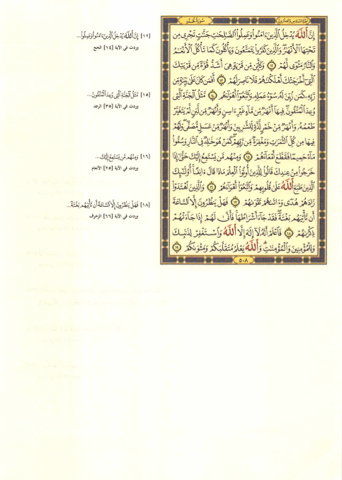 سورة محمد
إِنَّ ٱللَّهَ يُدْخِلُ ٱلَّذِينَ ءَامَنُوا۟ وَعَمِلُوا۟ ٱلصَّٰلِحَٰتِ جَنَّٰتٍ تَجْرِى مِن
تَحْتِهَا ٱلْأَنْهَٰرُ وَٱلَّذِينَ كَفَرُوا۟ يَتَمَتَّعُونَ وَيَأْكُلُونَ كَمَا تَأْكُلُ ٱلْأَنْعَٰمُ
وَٱلنَّارُ مَثْوًى لَّهُمْ ١٢ وَكَأَيِّن مِّن قَرْيَةٍ هِىَ أَشَدُّ قُوَّةً مِّن قَرْيَتِكَ
ٱلَّتِىٓ أَخْرَجَتْكَ أَهْلَكْنَٰهُمْ فَلَا نَاصِرَ لَهُمْ ١٣ أَفَمَن كَانَ عَلَىٰ بَيِّنَةٍ مِّن
رَّبِّهِۦ كَمَن زُيِّنَ لَهُۥ سُوٓءُ عَمَلِهِۦ وَٱتَّبَعُوٓا۟ أَهْوَآءَهُم ١٤ مَّثَلُ ٱلْجَنَّةِ ٱلَّتِى
وُعِدَ ٱلْمُتَّقُونَ فِيهَآ أَنْهَٰرٌ مِّن مَّآءٍ غَيْرِ ءَاسِنٍ وَأَنْهَٰرٌ مِّن لَّبَنٍ لَّمْ يَتَغَيَّرْ
طَعْمُهُۥ وَأَنْهَٰرٌ مِّنْ خَمْرٍ لَّذَّةٍ لِّلشَّٰرِبِينَ وَأَنْهَٰرٌ مِّنْ عَسَلٍ مُّصَفًّى وَلَهُمْ
فِيهَا مِن كُلِّ ٱلثَّمَرَٰتِ وَمَغْفِرَةٌ مِّن رَّبِّهِمْ كَمَنْ هُوَ خَٰلِدٌ فِى ٱلنَّارِ وَسُقُوا۟
مَآءً حَمِيمًا فَقَطَّعَ أَمْعَآءَهُمْ ١٥ وَمِنْهُم مَّن يَسْتَمِعُ إِلَيْكَ حَتَّىٰٓ إِذَا
خَرَجُوا۟ مِنْ عِندِكَ قَالُوا۟ لِلَّذِينَ أُوتُوا۟ ٱلْعِلْمَ مَاذَا قَالَ ءَانِفًا أُو۟لَٰٓئِكَ
ٱلَّذِينَ طَبَعَ ٱللَّهُ عَلَىٰ قُلُوبِهِمْ وَٱتَّبَعُوٓا۟ أَهْوَآءَهُمْ ١٦ وَٱلَّذِينَ ٱهْتَدَوْا۟
زَادَهُمْ هُدًى وَءَاتَىٰهُمْ تَقْوَىٰهُمْ ١٧ فَهَلْ يَنظُرُونَ إِلَّا ٱلسَّاعَةَ
أَن تَأْتِيَهُم بَغْتَةً فَقَدْ جَآءَ أَشْرَاطُهَا فَأَنَّىٰ لَهُمْ إِذَا جَآءَتْهُمْ
ذِكْرَىٰهُمْ ١٨ فَٱعْلَمْ أَنَّهُۥ لَآ إِلَٰهَ إِلَّا ٱللَّهُ وَٱسْتَغْفِرْ لِذَنۢبِكَ
وَلِلْمُؤْمِنِينَ وَٱلْمُؤْمِنَٰتِ وَٱللَّهُ يَعْلَمُ مُتَقَلَّبَكُمْ وَمَثْوَىٰكُمْ ١٩
٥٠٨
[١٢] إِنَّ ٱللَّهَ يُدْخِلُ ٱلَّذِينَ ءَامَنُوا۟ وَعَمِلُوا۟...
وردت في الآية [١٤] الحج
[١٥] مَّثَلُ ٱلْجَنَّةِ ٱلَّتِى وُعِدَ ٱلْمُتَّقُونَ...
وردت في الآية [٣٥] الرعد
[١٦] وَمِنْهُم مَّن يَسْتَمِعُ إِلَيْكَ...
وردت في الآية [٢٥] الأنعام
[١٨] فَهَلْ يَنظُرُونَ إِلَّا ٱلسَّاعَةَ أَن تَأْتِيَهُم بَغْتَةً...
وردت في الآية [٦٦] الزخرف